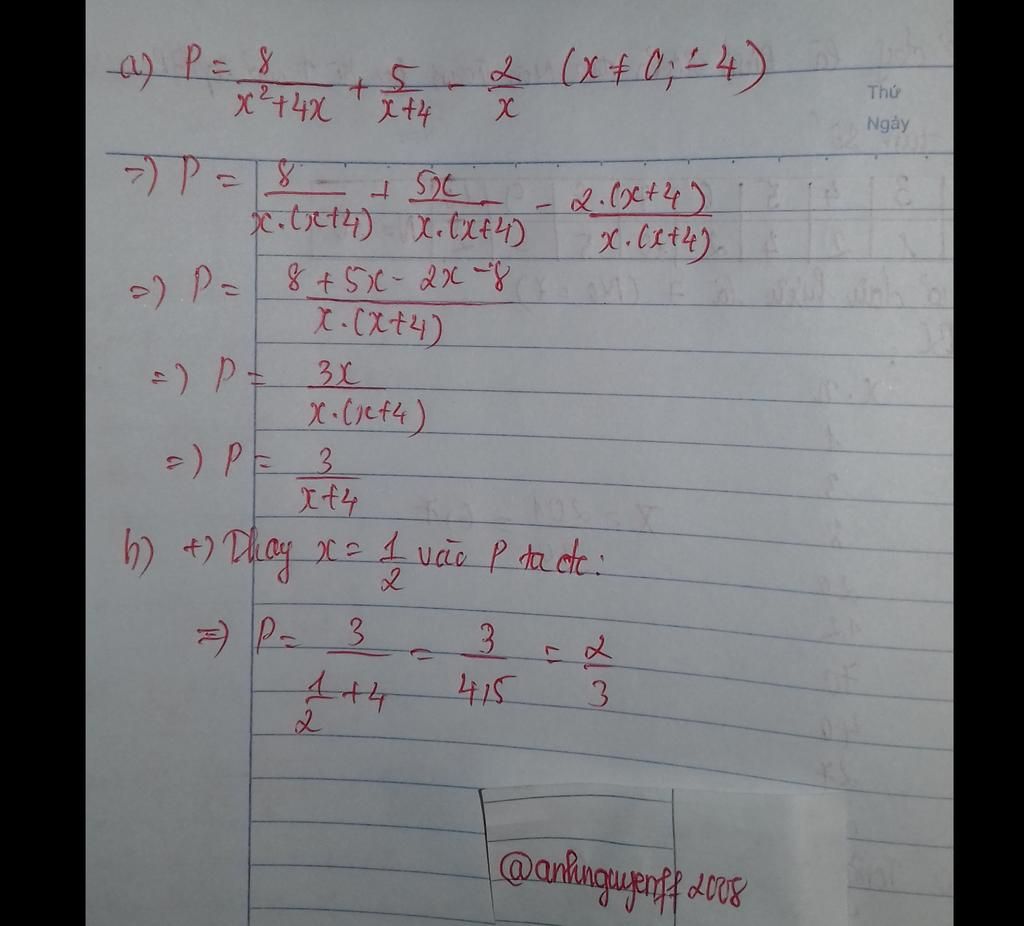 a) P = 8/(x²+4x) + 5/(x+4) - 2/x (x ≠ 0; -4)
Thứ
Ngày
=) P = 8/(x.(x+4)) + 5x/(x.(x+4)) - 2.(x+4)/(x.(x+4))
=) P = (8 + 5x - 2x - 8)/(x.(x+4))
=) P = 3x/(x.(x+4))
=) P = 3/(x+4)
b) +) Thay x = 1/2 vào P ta đc:
=) P = 3/(1/2 + 4) = 3/4,5 = 2/3
@anhnguyenff2008